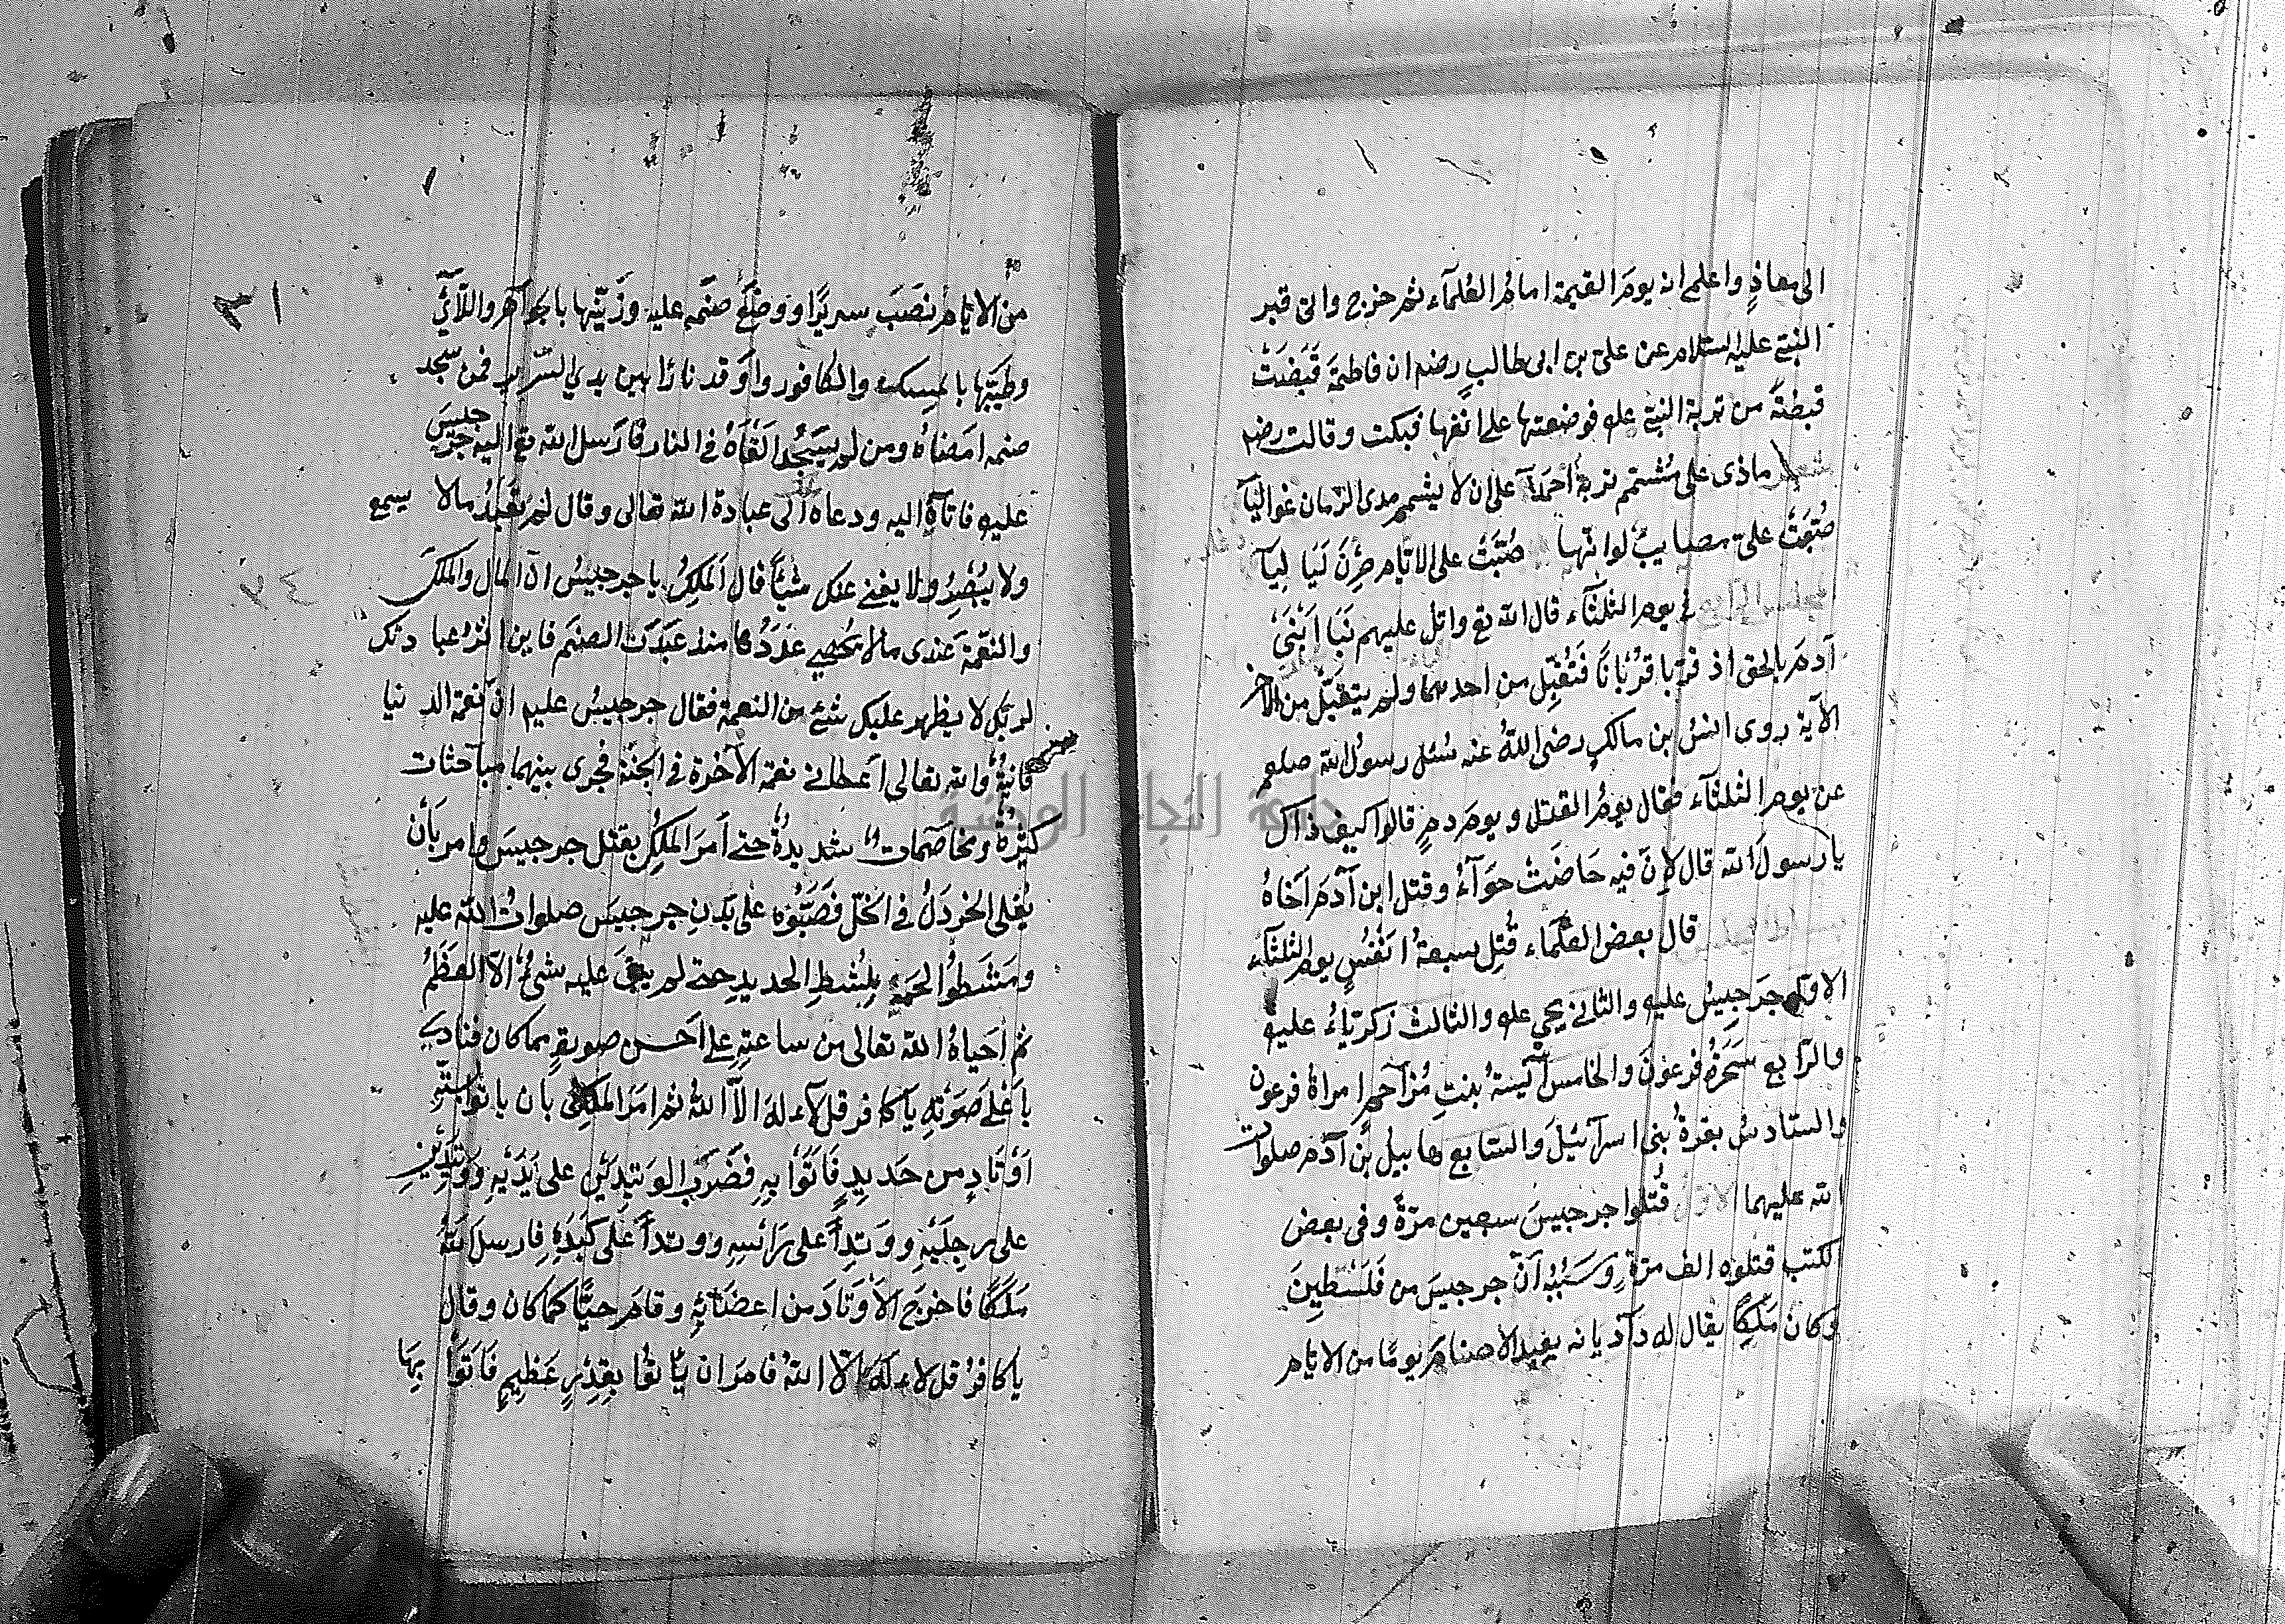 الى معاذٍ واعلم انه يومَ القيمة امامُ العُلمآء ثم خرج واتى قبر
النبىّ عليه السّلام عن علىّ بن ابى طالبٍ رضم ان فاطمةَ قَبَضَتْ
قبضةً من تربة النبىّ علم فوضعتها على انفها فبكت وقالت رضم
شعر ماذى على مُشتمّ تربةَ أحمَدَ على ان لا يشمّ مدى الزّمان غواليَا
صُبّتْ علىّ مصايبٌ لو انّها صُبّتْ على الايّام صِرْنَ لَيَا لِيَا
المجلس الرابع فى يوم الثلثآء قال الله تع واتل عليهم نَبَا ابْنَىْ
آدمَ بالحق اذ قرّبا قرُبانًا فَتُقُبّل من احدهما ولم يتقبّل من الاخر
الآية روى انسُ بن مالكٍ رضى اللهُ عنه سُئل رسولُ الله صلعم
عن يوم الثلثآء فقال يومُ القتل ويوم دمٍ قالوا كيف ذاك
يا رسول الله قال لانّ فيه حَاضَتْ حوّآءُ وقتل ابن آدمَ اخاهُ
قال بعض العُلمآء قُتِل سبعةُ انْفُسٍ يوم الثلثآء
الاوّل جرجيسُ عليه والثانى يحيى علم والثالث زكريّاءُ عليه
والرّابع سَحَرَةُ فرعونَ والخامسُ آسيةُ بنتِ مُزآحم امراةُ فرعون
والسّادسُ بقرةُ بنى اسرآئيل والسّابع هابيل بن آدم صلوات
الله عليهما الاول قُتلوا جرجيسَ سبعين مرّةً وفى بعض
الكتب قتلوه الف مرّةٍ وسَبَبُه انّ جرجيسَ من فَلَسْطِينَ
وكان مَلِكًا يقال له دآذيانه يعبد الاصنامَ يومًا من الايّام
٣١
من الايّام نَصَبَ سريرًا ووضَعَ صنَمَه عليه وزَيّنها بالجواهر واللآلئ
وطيّبها بالمسك والكافور واوقد نارًا بين يدى السّرير فمن سجد
صنمه امضاهُ ومن لم يَسجُد القَاهُ فى النار فارسل الله تع اليه جرجيسَ
عليه فاتآهُ اليه ودعاه الى عبادة الله تعالى وقال لِمَ تَعْبُدُ مالا يسمع
ولا يُبْصِرُ ولا يغنى عنك شيئًا فال المَلِكُ يا جرجيسُ انّ المال والمُلك
والنّعمةَ عندى مالا يُحصى عَدَدُها منذ عَبَدَتُ الصنَم فاين اثرُ عبا دتك
لربّك لا يظهر عليك شئ من النعمة فقال جرجيسُ عليم انّ نعمة الد نيا
فانيةٌ والله تعالى اعطانى نعمة الآخرة فى الجنّة فجرى بينهما مبآحثات
كثيرةٌ ومخاصَماتٌ شديدةٌ حتى اَمَرَ الملكُ بقتل جرجيسَ وامر بأن
يُغلى الخردَلُ فى الخلّ فَصَبّوُه على بَدنِ جرجيسَ صلواتُ الله عليه
ومَشَطوُا لحمَه بِمُشطِ الحديد حتى لم يبقَ عليه شئٌ الاّ العظَمُ
ثم اَحياهُ الله تعالى من ساعتِه على اَحسن صورةٍ مما كان فنادى
باَعْلى صَوْته يا كافر قل لآ اله الاّ اللهُ ثم امَر الملكُ بان ياتوا بستّة
اَوْتادٍ من حَديدٍ فَاَتَوْا بِه فضَرَب الوَتِديْن على يَدَيْهِ ووتِدَيْنِ
على رِجلَيْهِ ووَتِدًا على رَأسِهِ ووتدًا عَلى كَبِدِه فارسل الله
مَلَكًا فاخرَج الاَوْتادَ من اعضَائه وقامَ حيًّا كما كان وقال
يا كافرُ قل لا اله الاّ اللهُ فامرَ ان يأتوا بقِدْرٍ عَظيمٍ فَاَتَوْا بِهَا
جامعة النجاح الوطنية